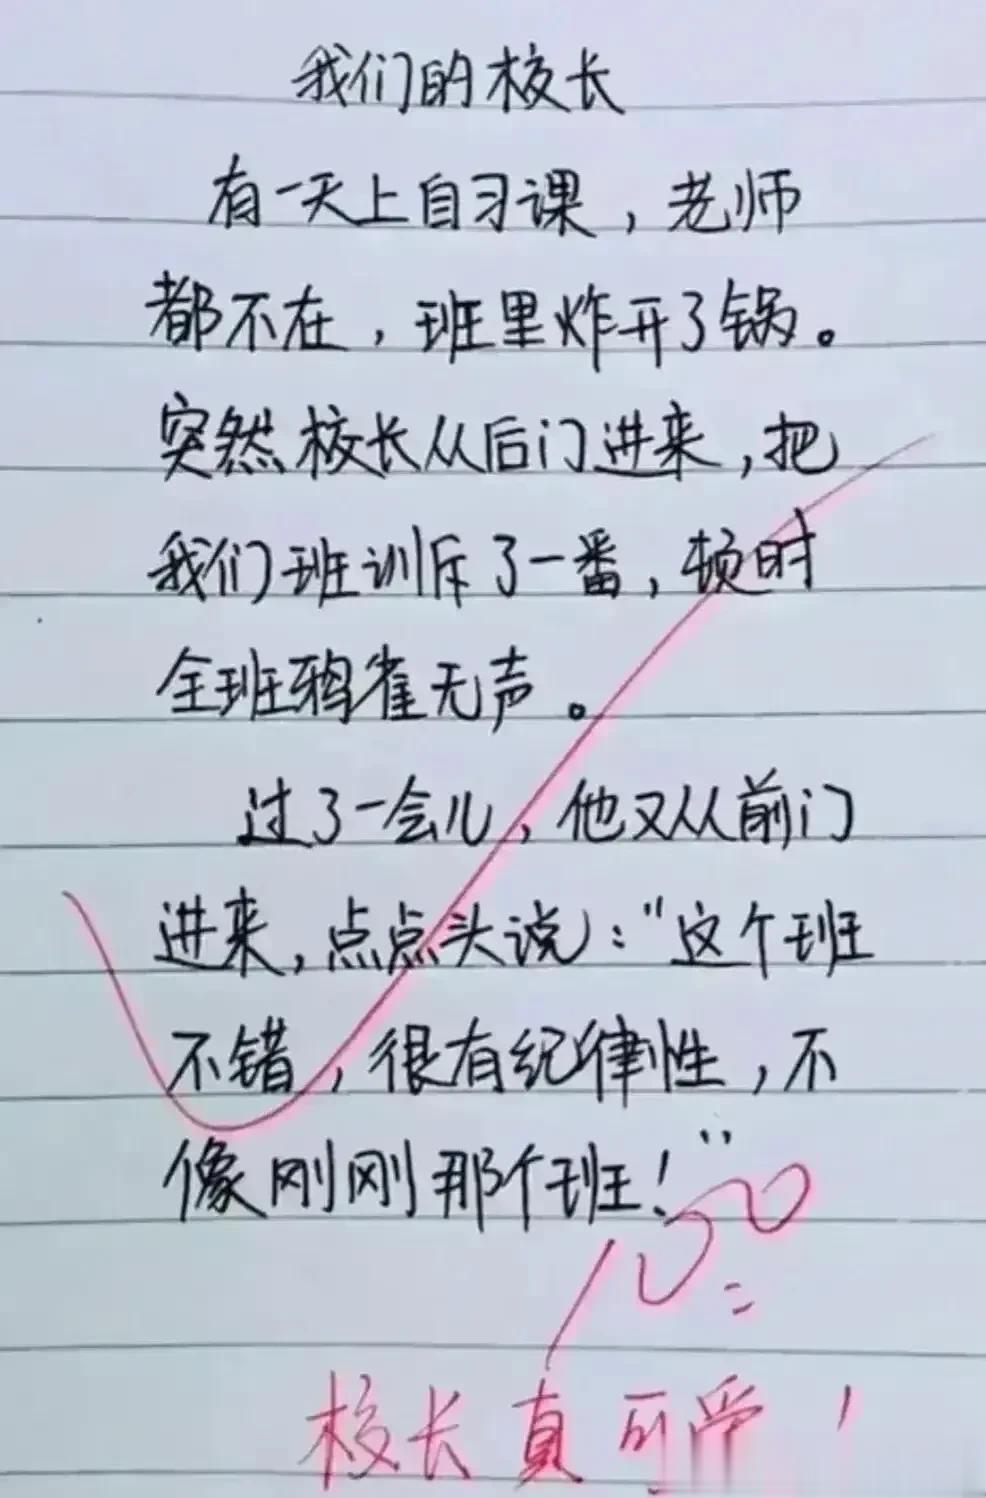 我们的校长
有一天上自习课，老师
都不在，班里炸开了锅。
突然校长从后门进来，把
我们班训斥了一番，顿时
全班鸦雀无声。
过了一会儿，他又从前门
进来，点点头说："这个班
不错，很有纪律性，不
像刚刚那个班！"
100
校长真可爱！